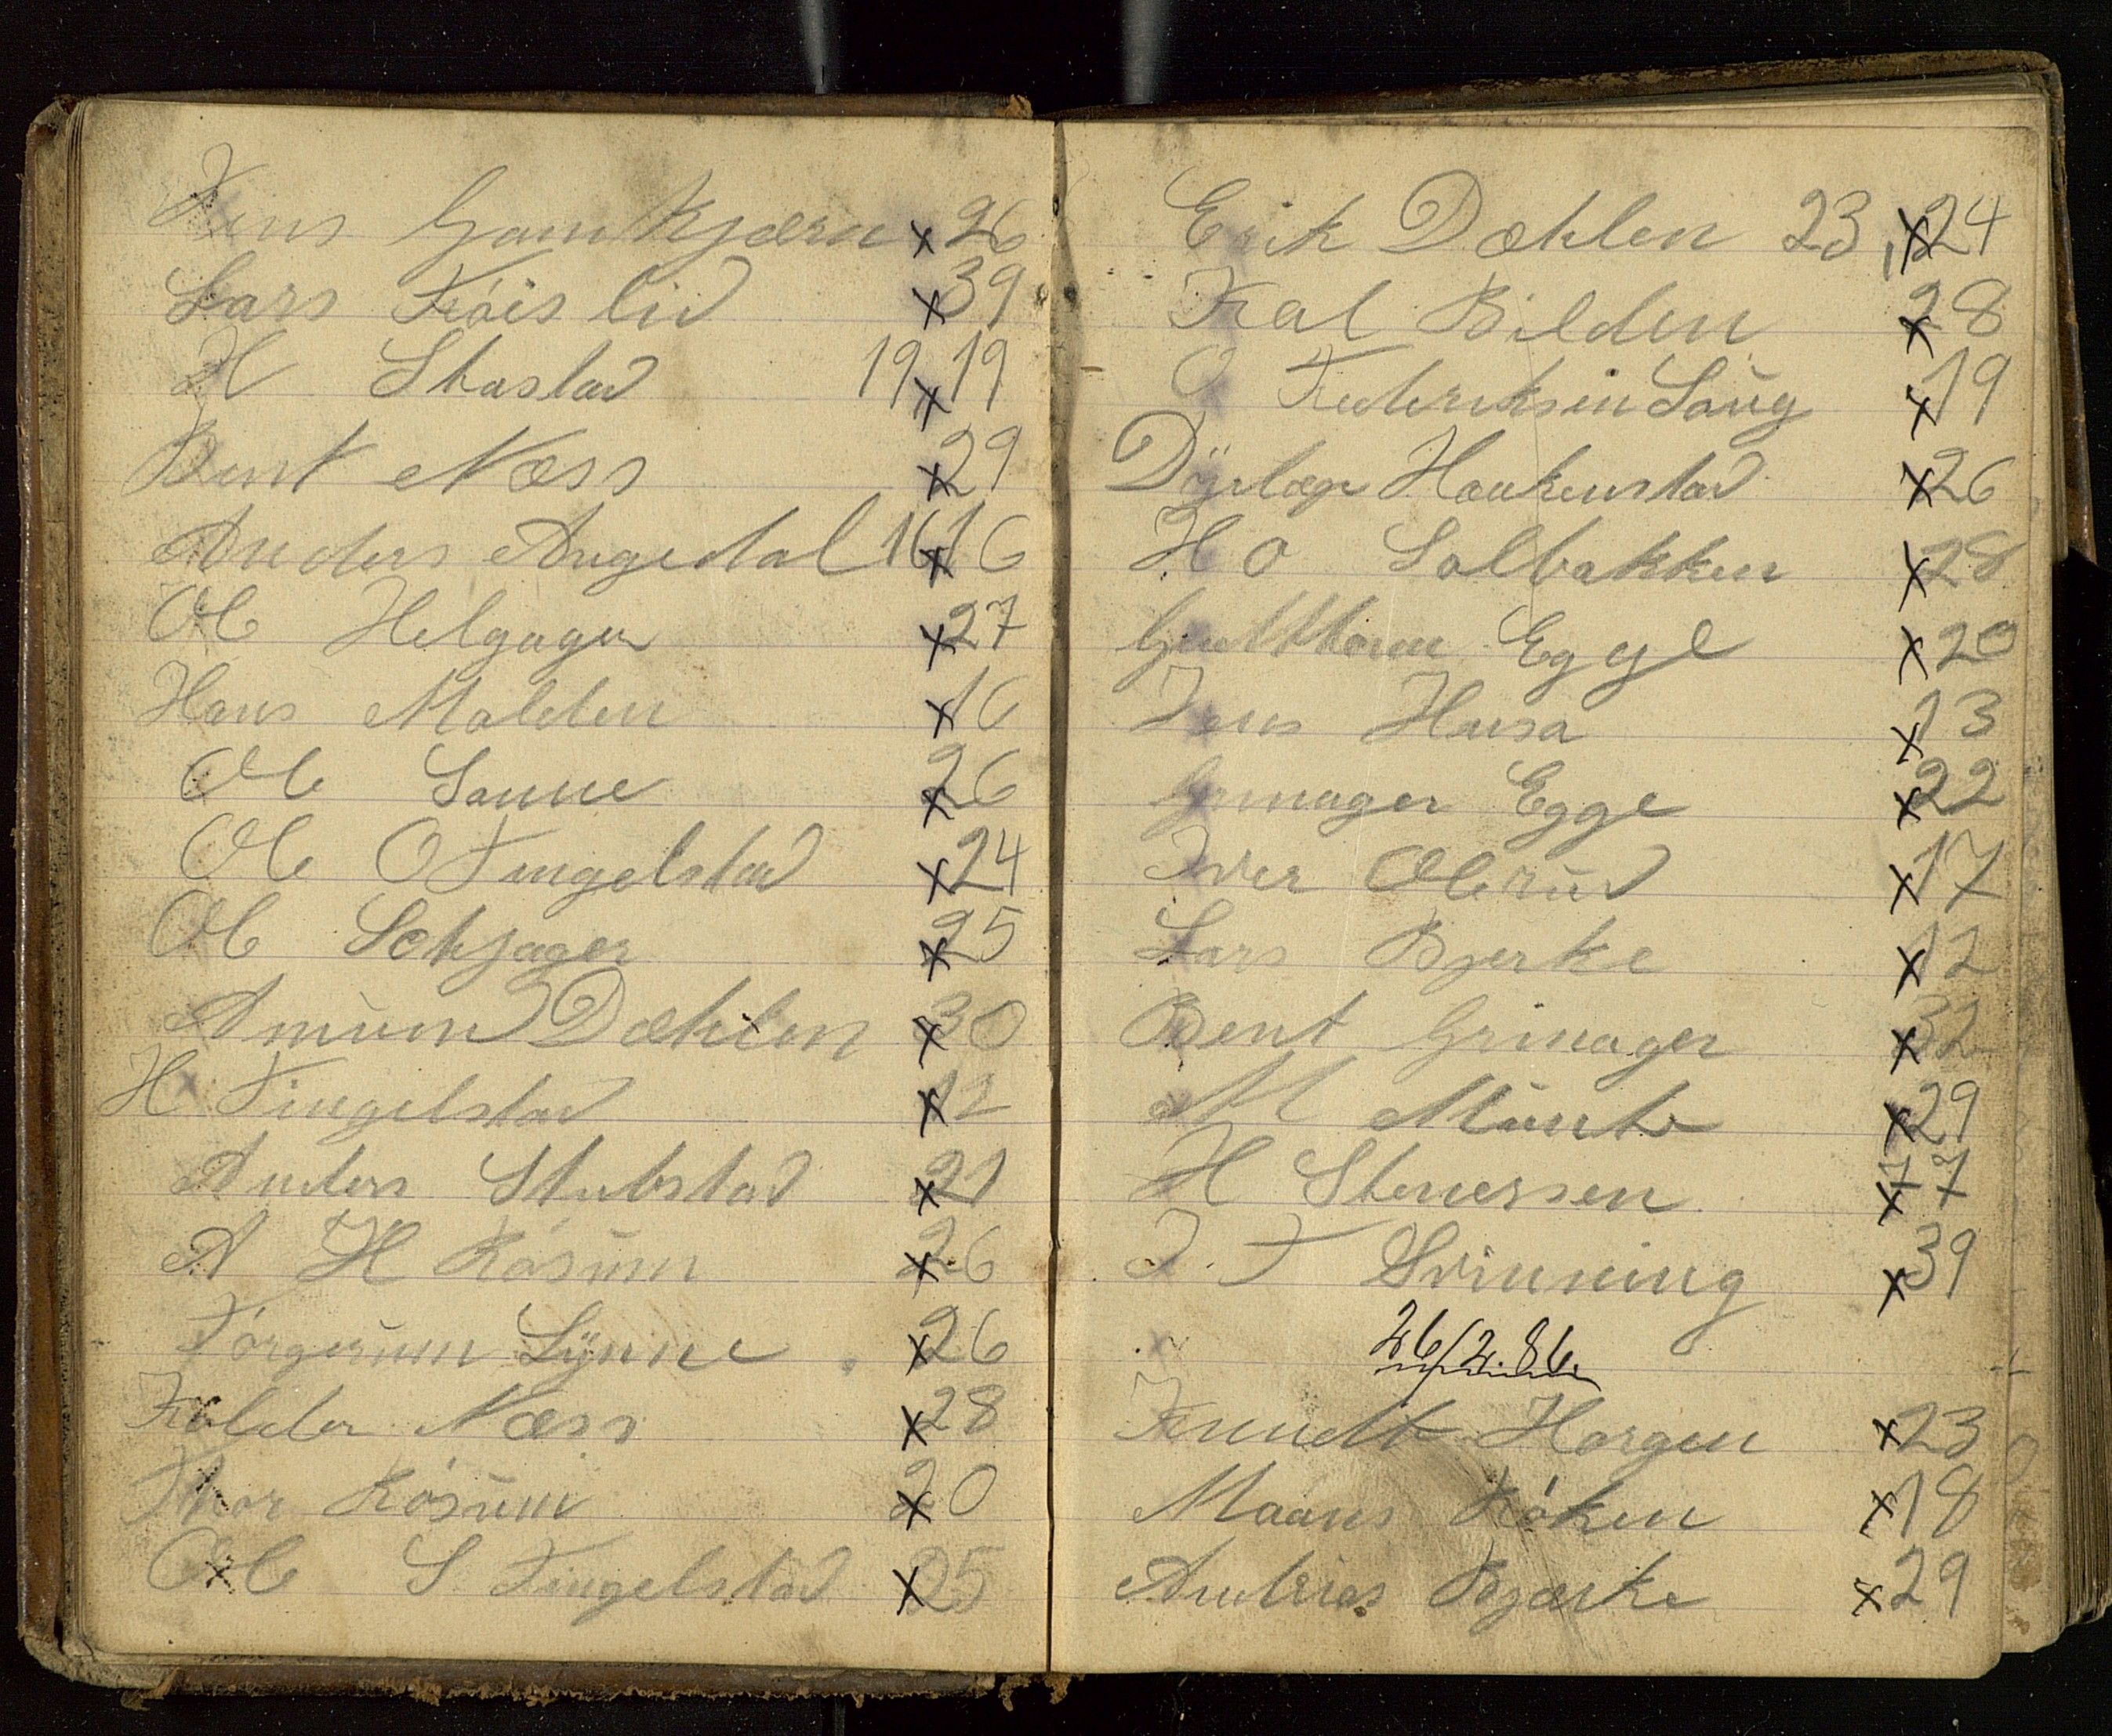 Jens GamKjærn x 26
Lars Fröislid x 39
H Stastad 19 x 19
Bent Næss x 29
Anders Angedal 16 x 16
Ole Helgager x 27
Hans Molden x 16
Ole Sanne x 26
Ole O Tingelstad x 24
Ole Sehjager x 25
Amund Dæhlen x 30
H Tingelstad x 12
Anders Stubstad x 21
A H Rósum x 26
Torgerum Lynne x 26
Kolder Næss x 28
Thor Rósum x 20
Ole S Tingelstad x 25
Erik Dæhlen 23, x 24
Kal Bilden x 28
O Frederiksen Saug x 19
Dÿrlæge Haakenstad x 26
H O Solbakken x 28
Gutthorm Egge x 20
Jens Husa x 13
Grinager Egge x 22
Iver Olerud x 17
Lars Bjerke x 12
Bent Grinager x 32
M Münte x 29
H Stenersen x 77
J. F Svinning x 39
26/2. 86.
Knudt Horgen x 23
Maans Róken x 18
Andreas Bjærke x 29